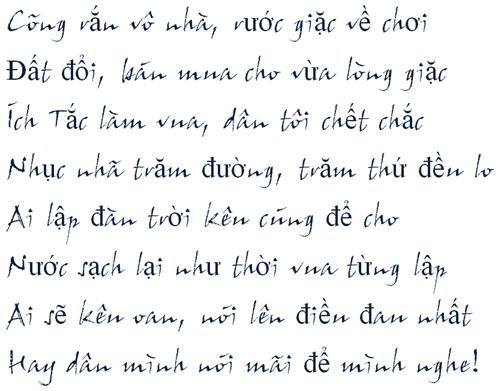 Cõng rắn vô nhà, rước giặc về chơi
Đất đổi, bán mua cho vừa lòng giặc
Ích Tắc làm vua, dân tôi chết chắc
Nhục nhã trăm đường, trăm thứ đều lo
Ai lập đàn trời kên cũng để cho
Nước sạch lại như thời vua từng lập
Ai sẽ kên oan, nói lên điều đan nhất
Hay dân mình nói mãi để mình nghe!